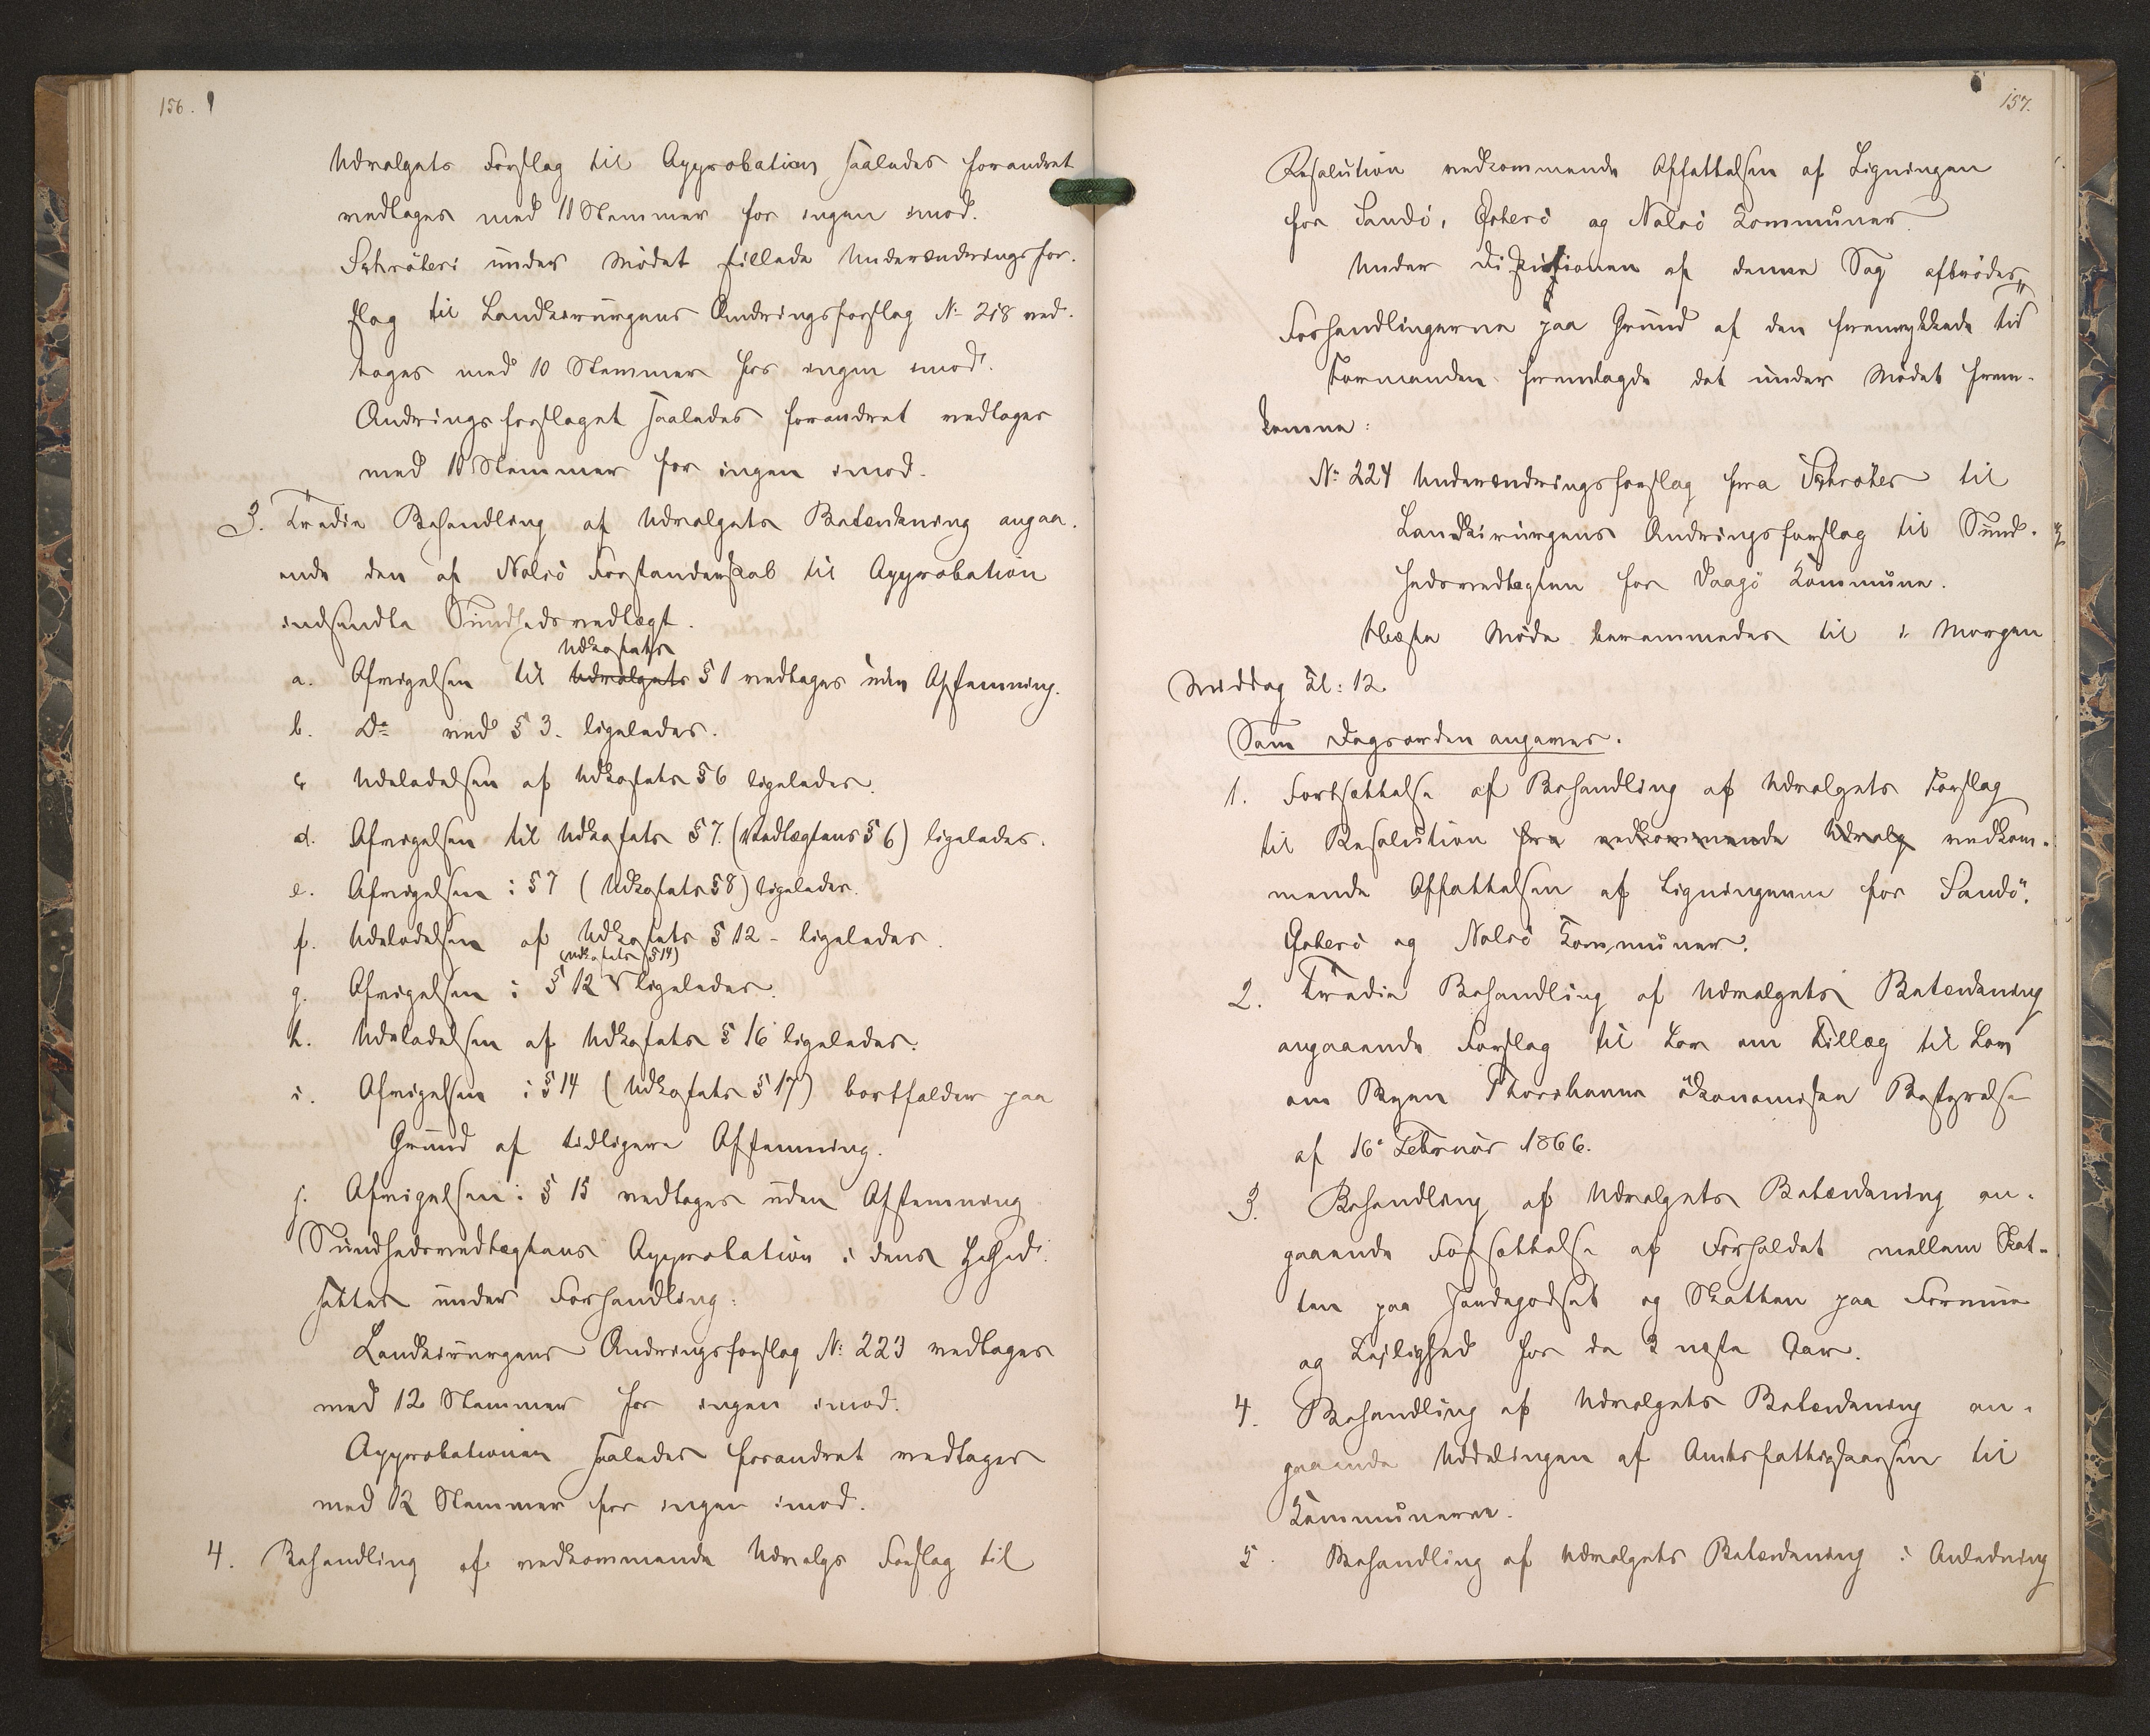 156.
Udvalgets Forslag til Approbation saaledes forandret
vedtages med 11 Stemmer for ingen imod.
Schrøters under Mødet stillede Underændringsfor-
slag til Landkirurgens Ændringsforslag No 218 ved-
tages med 10 Stemmer for ingen imod.
Ændringsforslaget saaledes forandret vedtages
med 10 Stemmer for ingen imod.
3. Tredie Behandling af Udvalgets Betænkning angaa-
ende den af Nolsø Forstanderskab til Approbation
indsendte Sundhedsvedtægt.
Udkastets
a. Afvigelsen til Udvalgets § 1 vedtages uden Afstemning.
b. Do ved § 3. ligeledes.
c Udeladelsen af Udkastets § 6 ligeledes.
d. Afvigelsen til Udkastets § 7. (Vedtægtens § 6) ligeledes.
e. Afvigelsen i § 7 (Udkastets § 8) ligeledes.
f. Udeladelsen af Udkastets § 12 - ligeledes.
(Udkastets § 14)
g. Afvigelsen i § 12 ligeledes.
h. Udeladelsen af Udkastets § 16 ligeledes.
i. Afvigelsen i § 14 (Udkastets § 17) bortfalder paa
Grund af tidligere Afstemning.
j. Afvigelsen i § 15 vedtages uden Afstemning
Sundhedsvedtægtens Approbation i dens Helhed
sættes under Forhandling:
Landkirurgens Ændringsforslag No 223 vedtages
med 12 Stemmer for ingen imod.
Approbationen saaledes forandret vedtages
med 12 Stemmer for ingen imod.
4. Behandling af vedkommende Udvalgs Forslag til
157.
Resolution vedkommende Affattelsen af Ligningen
for Sandø, Østerø og Nolsø Kommuner.
Under Diskusionen af denne Sag afbrødes
Forhandlingerne paa Grund af den fremrykkede Tid
Formanden fremlagde det under Mødet frem-
komne:
No 224 Underændringsforslag fra Schrøter til
Landkirurgens Ændringsforslag til Sund-
hedsvedtægten for Vaagø Kommune.
Næste Møde berammedes til i Morgen
Middag Kl: 12.
Som Dagsorden angaves.
1. Fortsættelse af Behandling af Udvalgets Forslag
til Resolution fra vedkommende Udvalg vedkom-
mende Affattelsen af Ligningerne for Sandø,
Østerø og Nolsø Kommuner.
2. Tredie Behandling af Udvalgets Betænkning
angaaende Forslag til Lov om Tillæg til Lov
om Byen Thorshavns økonomiske Bestyrelse
af 16de Februar 1866.
3. Behandling af Udvalgets Betænkning an-
gaaende Fastsættelse af Forholdet mellem Skat-
ten paa Jordegodset og Skatten paa Formue
og Lejlighed for de 3 næste Aar.
4. Behandling af Udvalgets Betænkning an-
gaaende Uddelingen af Amtsfattigkassen til
Kommunerne.
5. Behandling af Udvalgets Betænkning i Anledning